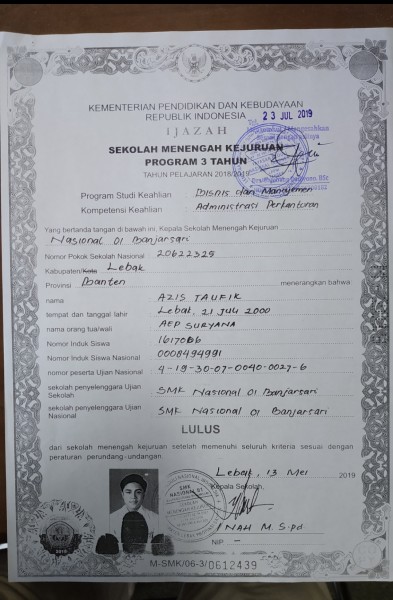 KEMENTERIAN PENDIDIKAN DAN KEBUDAYAAN
REPUBLIK INDONESIA
IJAZAH
SEKOLAH MENENGAH KEJURUAN
PROGRAM 3 TAHUN
TAHUN PELAJARAN 2018/2019
Tgl. 23 JUL 2019
Program Studi Keahlian : Bisnis dan Manajemen
Kompetensi Keahlian : Administrasi Perkantoran
Yang bertanda tangan di bawah ini, Kepala Sekolah Menengah Kejuruan
Nasional 01 Banjarsari
Nomor Pokok Sekolah Nasional : 20622325
Kabupaten/Kota Lebak
Provinsi Banten menerangkan bahwa
nama : AZIS TAUFIK
tempat dan tanggal lahir : Lebak, 21 Juli 2000
nama orang tua/wali : AEP SURYANA
Nomor Induk Siswa : 1617066
Nomor Induk Siswa Nasional : 0008494991
nomor peserta Ujian Nasional : 4-19-30-07-0040-0027-6
sekolah penyelenggara Ujian Sekolah : SMK Nasional 01 Banjarsari
sekolah penyelenggara Ujian Nasional : SMK Nasional 01 Banjarsari
LULUS
dari sekolah menengah kejuruan setelah memenuhi seluruh kriteria sesuai dengan
peraturan perundang-undangan.
Lebak, 13 Mei 2019
Kepala Sekolah,
SMK
NASIONAL 01
INAH M. S.pd
NIP -
2019
M-SMK/06-3/0612439